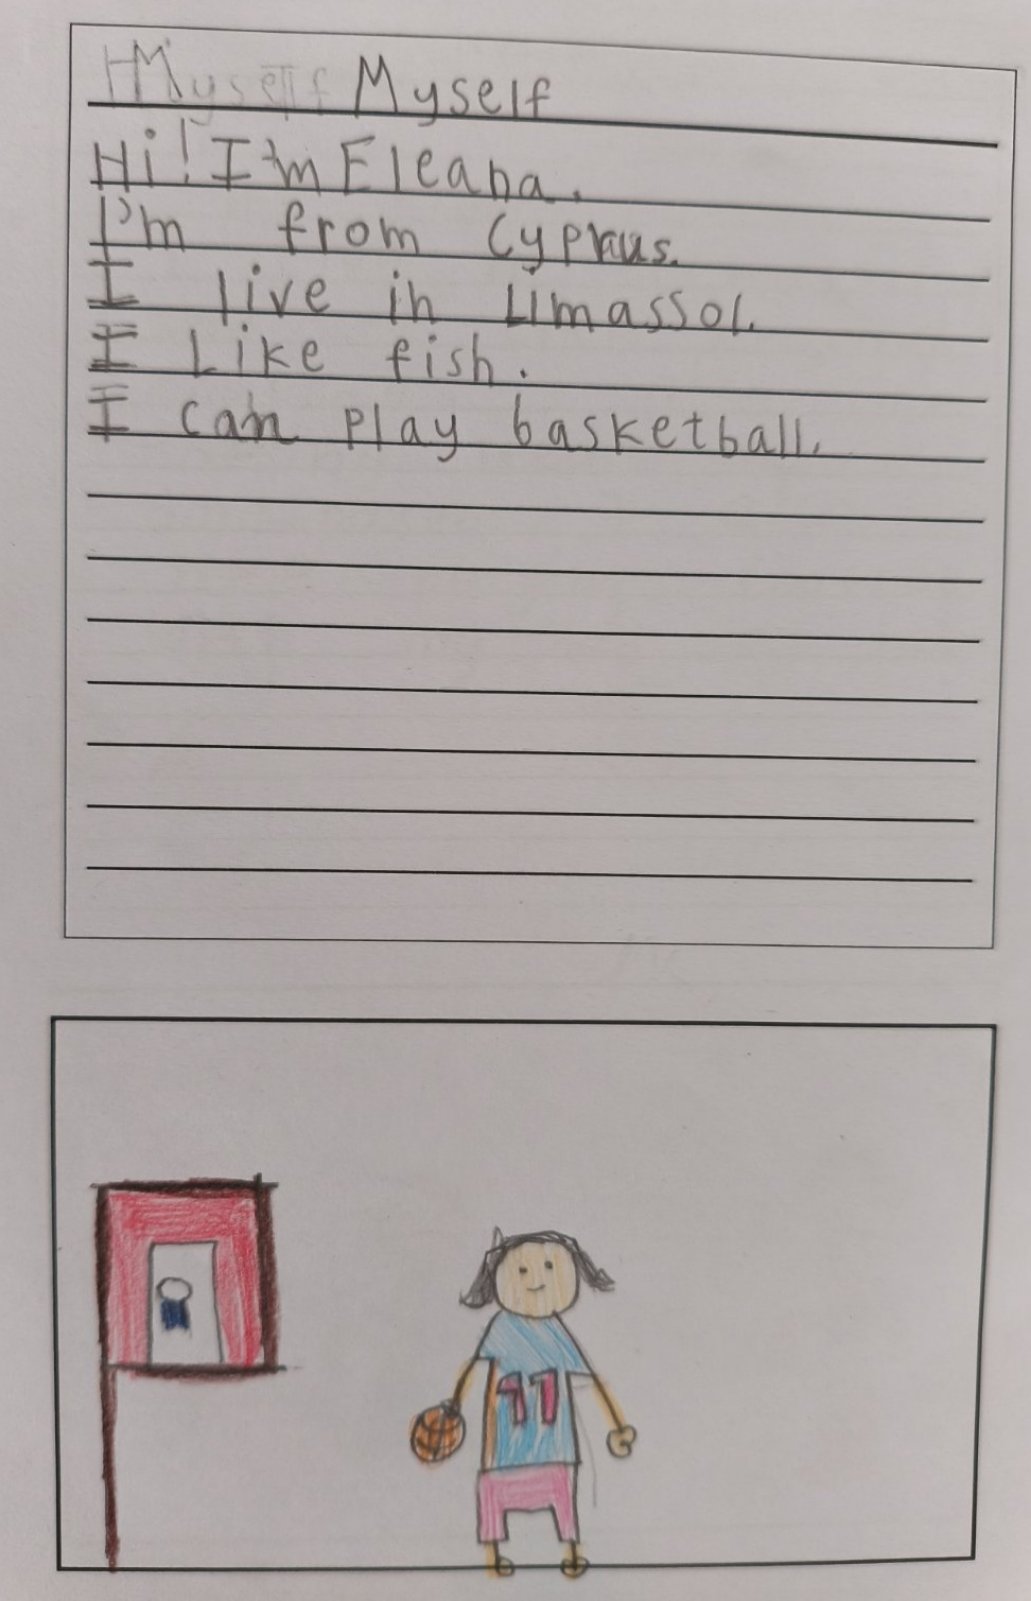 Myself Myself
Hi! I'm Eleana.
I'm from Cyprus.
I live in Limassol.
I Like fish.
I can play basketball.
11